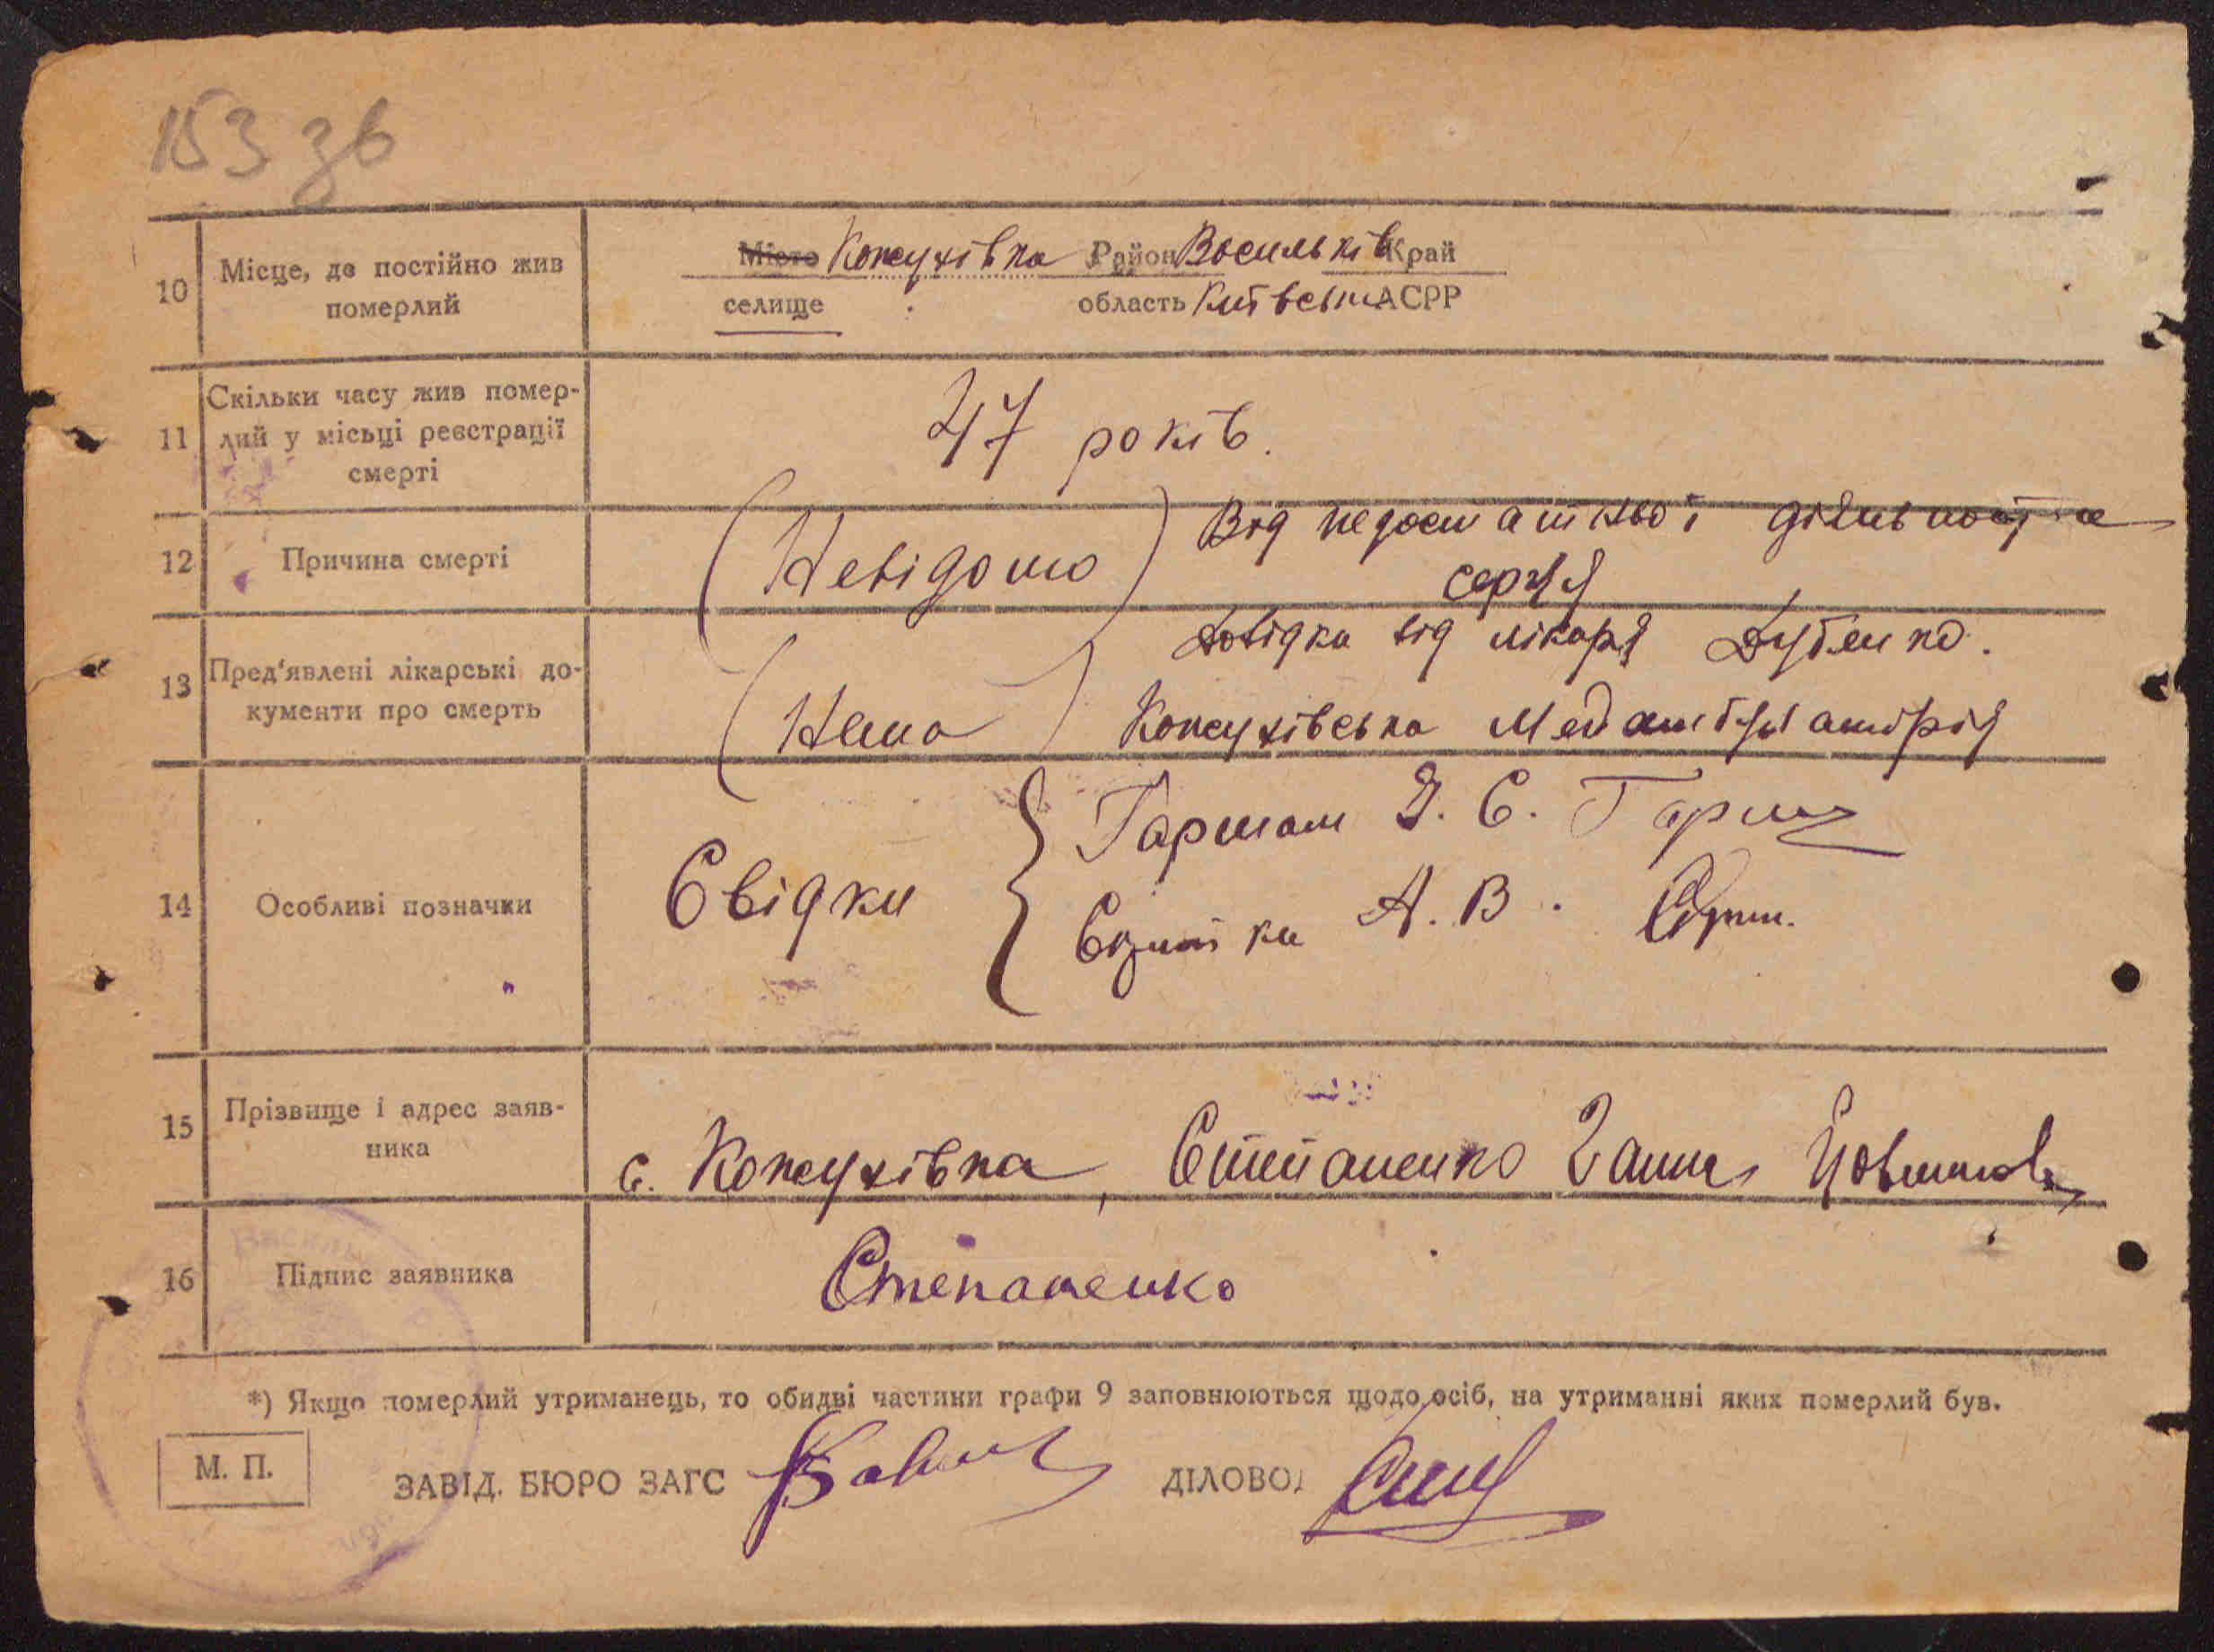 153 зв
10 Місце, де постійно жив померлий
Місто Кожухівка Район Васильків Край
селище область Київська АСРР
11 Скільки часу жив помер-
лий у місьці реєстрації
смерті
47 років.
12 Причина смерті
(Невідомо) Від недостатньої діяльності
серця
13 Пред'явлені лікарські до-
кументи про смерть
Довідка від лікаря Дубенко.
(Нема) Кожухівська Медамбулаторія
14 Особливі позначки
Свідки
Гаршам Я. С.
А. В.
15 Прізвище і адрес заяв-
ника
с. Кожухівка, Степаненко Ганна
16 Підпис заявника
Степаненко
*) Якщо померлий утриманець, то обидві частини графи 9 заповнюються щодо осіб, на утриманні яких померлий був.
М. П.
ЗАВІД. БЮРО ЗАГС ДІЛОВОД